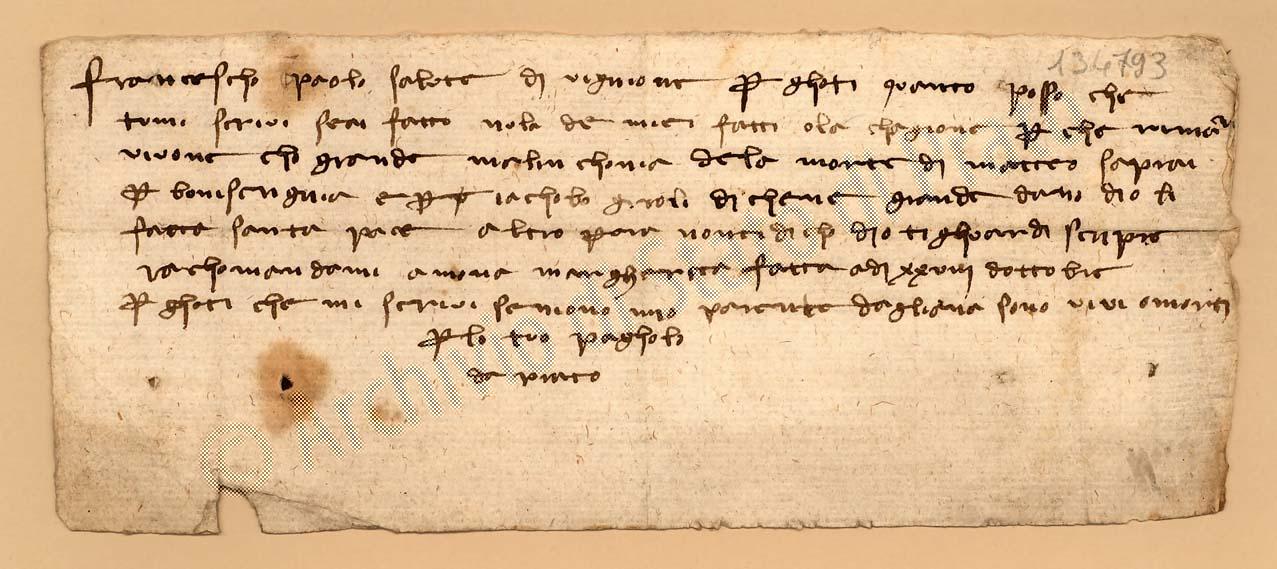 134793
francescho paolo salute di vignione p ghoti quanto posso che
tu mi scrivi se ai fatto nula de miei fatti o la chagione p che
vivone cho grande malinchonia de la morte di matteo sapiai
p boninsengnia e p iachobo giroli di che ne grande dano dio li
facca santa pacie altro p ora non ti dicho dio ti ghuardi senpre
rachomandami a mona margherita fatta a di xxviii dottobre
p ghoti che mi scrivi se niono mio parente dagliana sono vivi o morti
p lo tuo pagholo
da
© Archivio di Stato di Prato